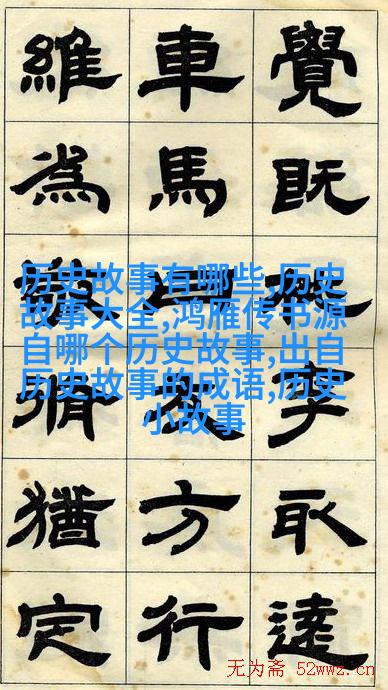 覺既取達
車馬方行
維為猶定
历史故事有哪些,历史
故事大全,鸿雁传书源
自哪个历史故事,出自
历史故事的成语,历史
小故事
无为斋 52wwz.cn